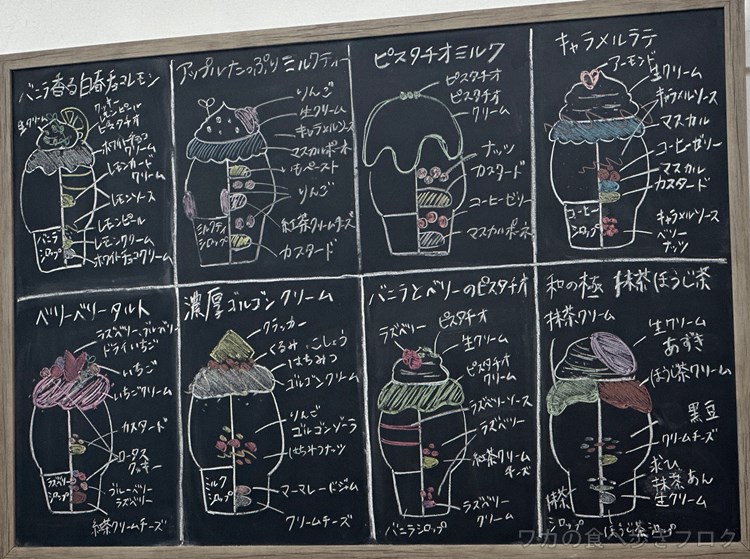 バニラ香る白春チョコレモン
生クリーム
クッキー
レモンピール
ピスタチオ
ホワイトチョコ
クリーム
レモンカード
クリーム
レモンソース
レモンピール
レモンクリーム
ホワイトチョコクリーム
バニラ
シロップ
アップルたっぷりミルクティー
りんご
生クリーム
キャラメルソース
マスカルポーネ
いもペースト
りんご
紅茶クリームチーズ
カスタード
ミルクティ
シロップ
ピスタチオミルク
ピスタチオ
ピスタチオ
クリーム
ナッツ
カスタード
コーヒーゼリー
マスカルポーネ
キャラメルラテ
アーモンド
生クリーム
キャラメルソース
マスカル
コーヒーゼリー
マスカル
カスタード
キャラメルソース
ベリー
ナッツ
コーヒー
シロップ
ベリーベリータルト
ラズベリー、ブルーベリー
ドライいちご
いちご
いちごクリーム
カスタード
ロータス
クッキー
ブルーベリー
ラズベリー
紅茶クリームチーズ
ラズベリー
シロップ
濃厚ゴルゴンクリーム
クラッカー
くるみ、こしょう
はちみつ
ゴルゴンクリーム
りんご
ゴルゴンゾーラ
はちみつナッツ
マーマレードジャム
クリームチーズ
ミルク
シロップ
バニラとベリーのピスタチオ
ラズベリー
ピスタチオ
生クリーム
ピスタチオ
クリーム
ラズベリーソース
ラズベリー
紅茶クリーム
チーズ
ラズベリー
クリーム
バニラシロップ
和の極 抹茶ほうじ茶
抹茶クリーム
生クリーム
あずき
ほうじ茶クリーム
黒豆
クリームチーズ
求ひ
抹茶あん
生クリーム
抹茶
シロップ
ほうじ茶シロップ
ワカの食べ歩きブログ